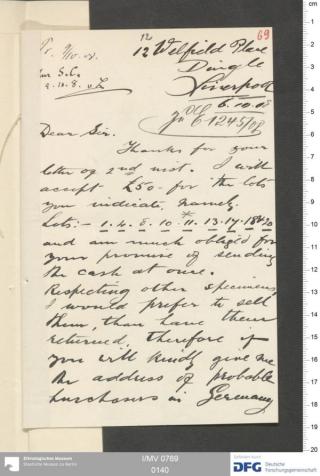 12
69
12 Welfield Place
Dingle
Liverpool
6.10.08
E 1245/08
Dear Sir.
Thanks for your
letter of 2nd inst. I will
accept £50 - for the lots
you indicate, namely.
Lots:- 1. 4. 8. 10. 11. 13. 17. 18
and am much obliged for
your promise of sending
the cash at once.
Respecting other specimens
I would prefer to sell
them, than have them
returned, therefore if
you will kindly give me
the address of probable
purchasers in Germany
cm
1
2
3
4
5
6
7
8
9
10
11
12
13
14
15
16
17
18
19
20
Ethnologisches Museum
Staatliche Museen zu Berlin
I/MV 0769
0140
Gefördert durch
DFG Deutsche
Forschungsgemeinschaft